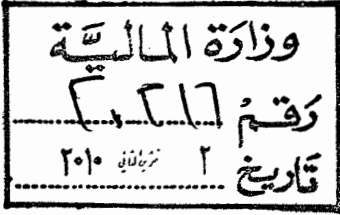 وزارة المالية
رقم ٢٠٢١٦
تاريخ ٢ تشرين الثاني ٢٠١٠